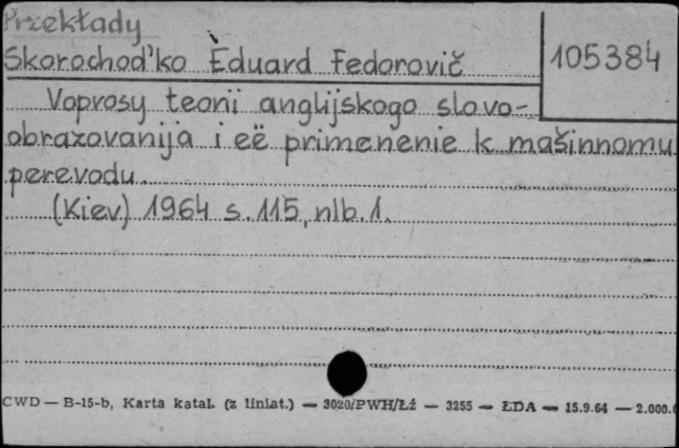 Przekłady
Skorochod'ko Èduard Fedorovič
105384
Voprosy teorii anglijskogo slovo-
obrazovanija i eë primenenie k mašinnomu
perevodu.
(Kiev) 1964 s. 115, nlb. 1.
CWD — B-15-b, Karta katal. (z liniat.) — 3020/PWH/Łź — 3255 — ŁDA — 15.9.64 — 2.000.0